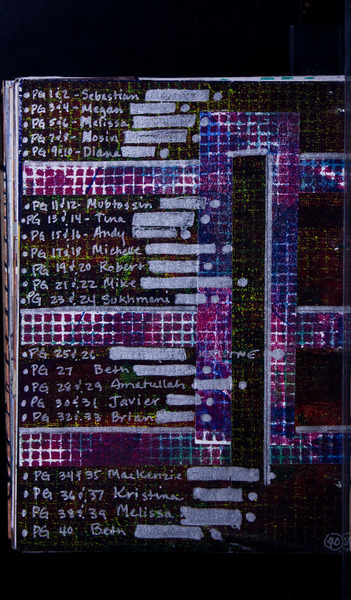 • PG 1&2 - Sebastian
• PG 3&4 - Megan
• PG 5&6 - Melissa
• PG 7&8 - Mosin
• PG 9&10 - Diana
• PG 11&12 - Mubtassin
• PG 13&14 - Tina
• PG 15&16 - Andy
• PG 17&18 Michelle
• PG 19&20 Robert
• PG 21&22 Mike
• PG 23&24 Sukhmani
• PG 25&26
• PG 27 Beth
• PG 28&29 Amatullah
• PG 30&31 Javier
• PG 32&33 Brian
• PG 34&35 Mackenzie
• PG 36&37 Kristina
• PG 38&39 Melissa
• PG 40 Beth
40